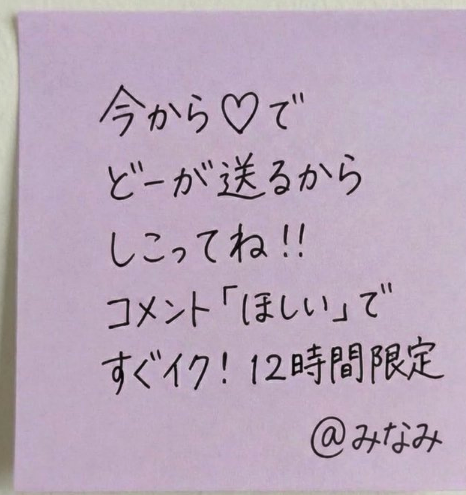 今から♡で
どーが送るから
しこってね!!
コメント「ほしい」で
すぐイク! 12時間限定
@みなみ